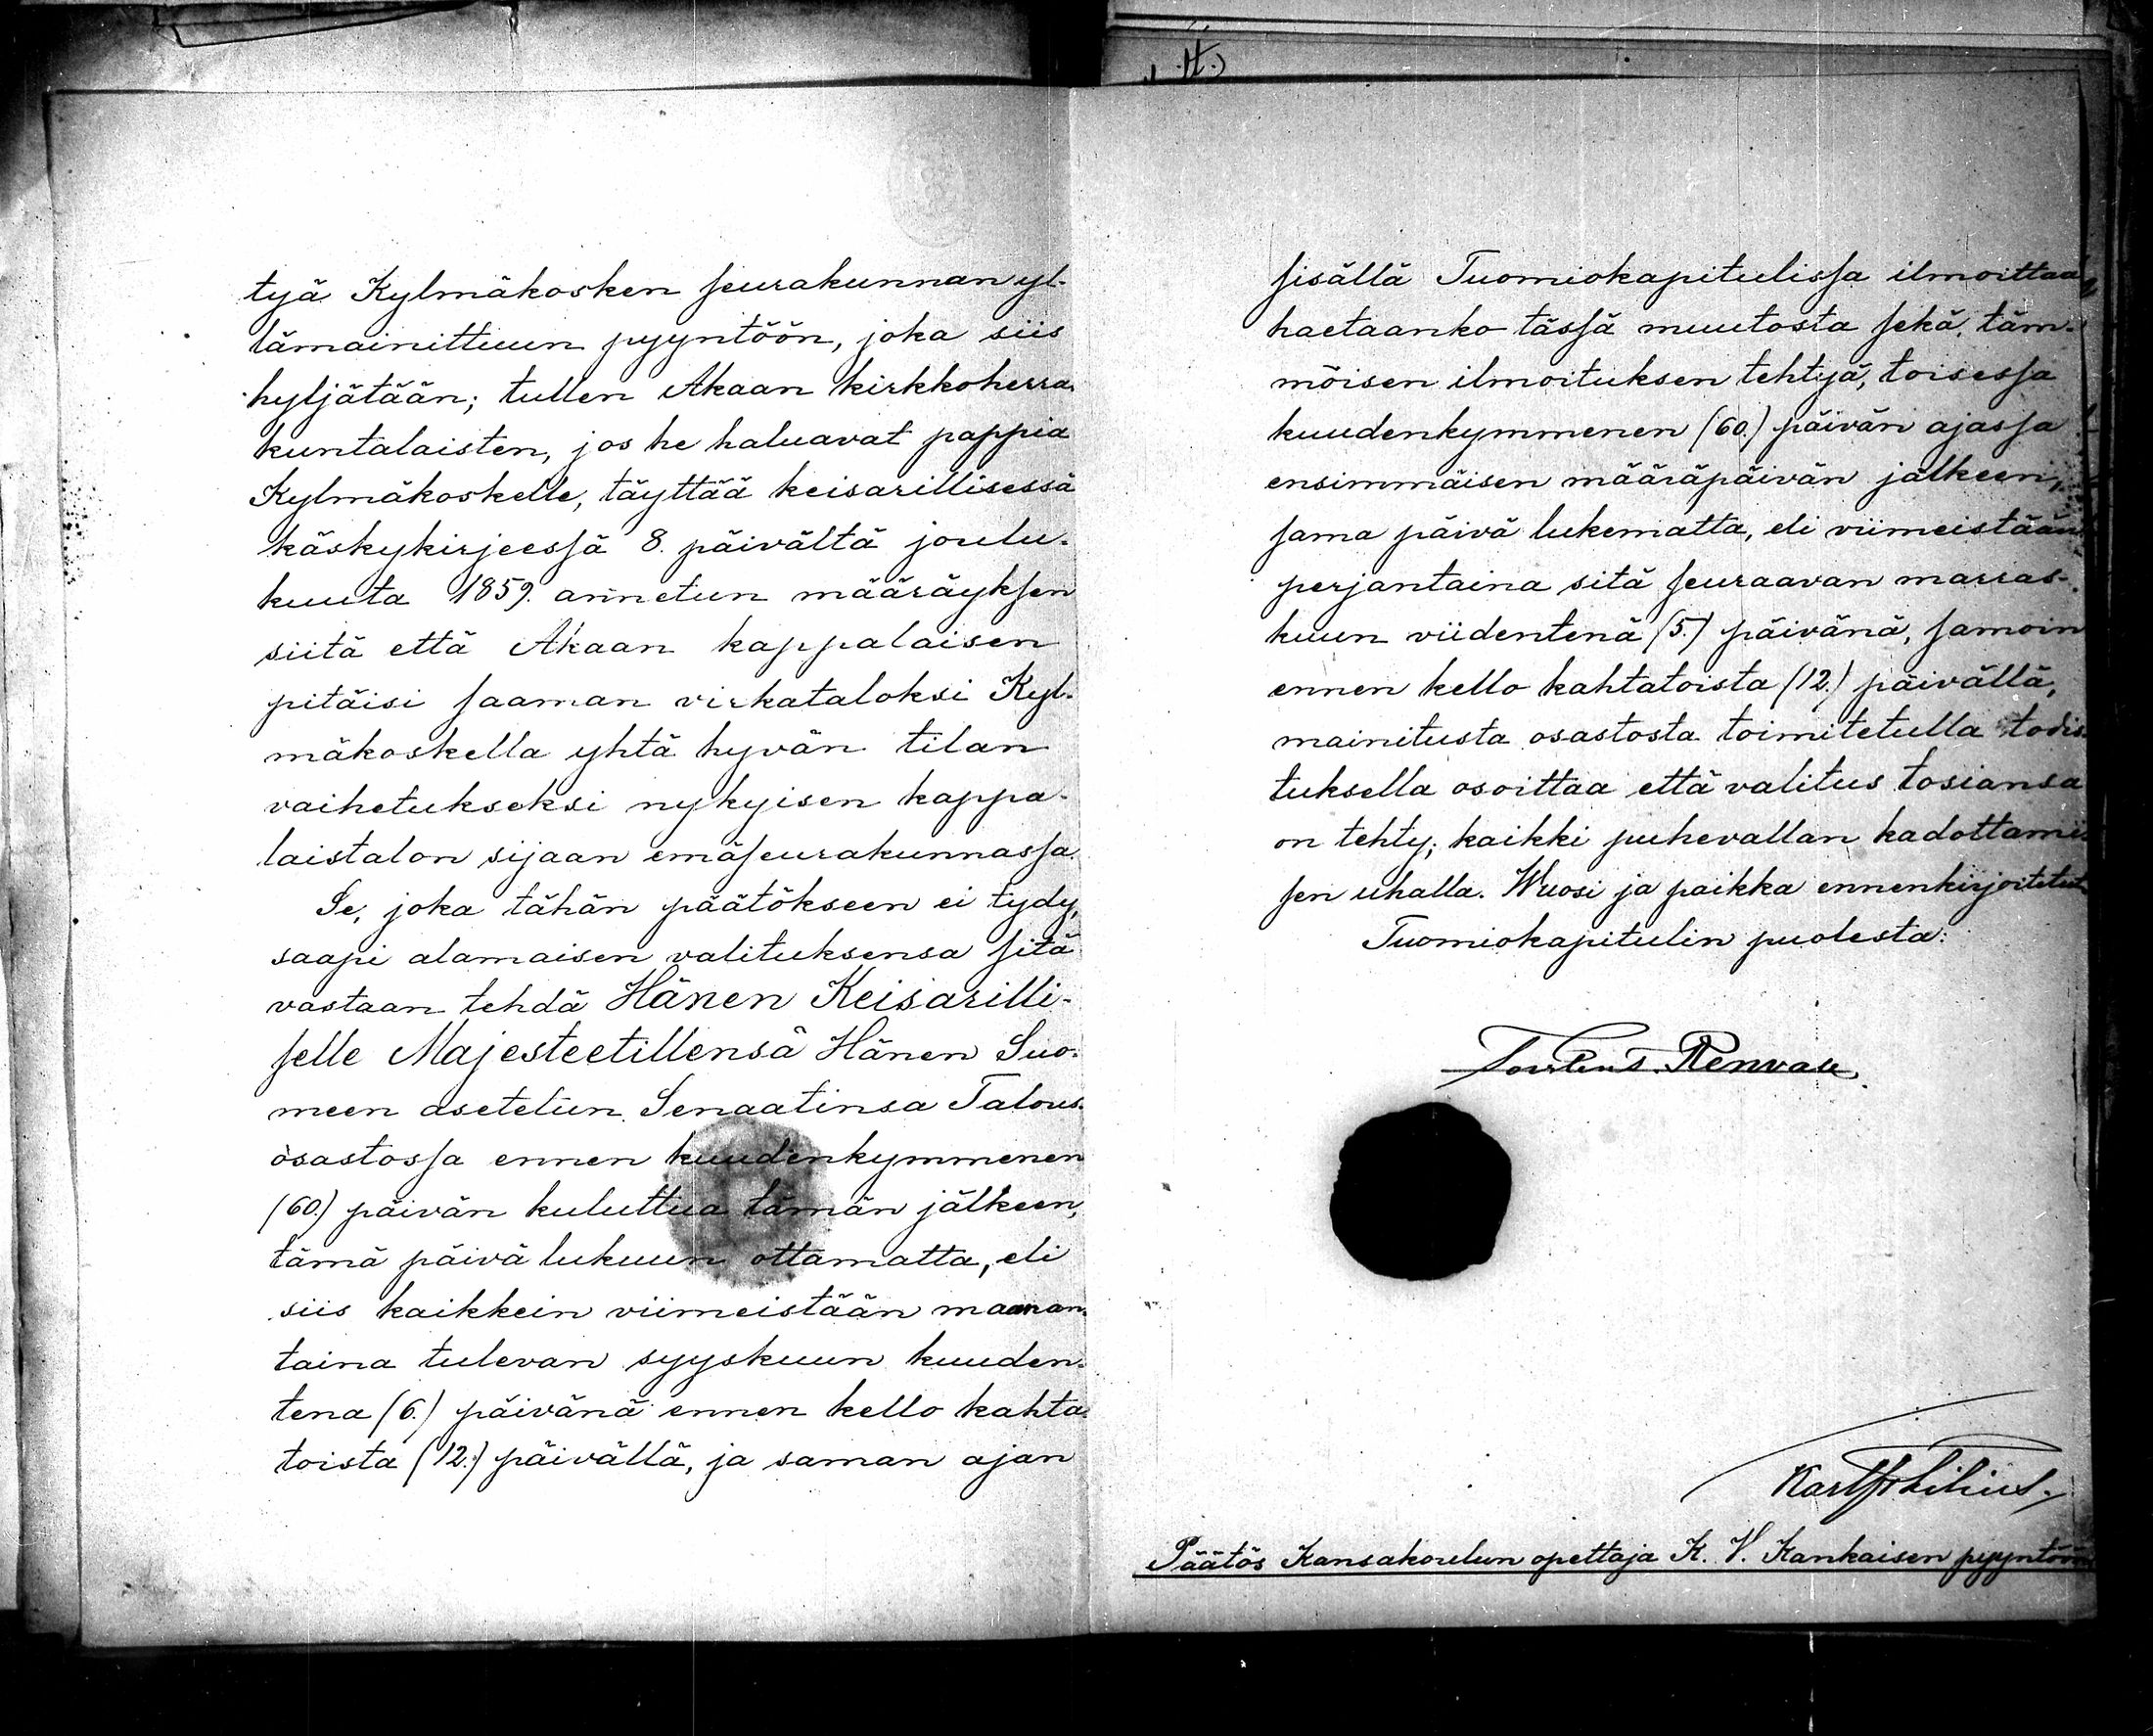 tyä Kylmäkosken seurakunnan yl-
lämainittuun pyyntöön, joka siis
hyljätään; tullen Akaan kirkkoherra-
kuntalaisten, jos he haluavat pappia
Kylmäkoskelle, täyttää keisarillisessä
käskykirjeessä 8. päivältä joulu-
kuuta 1859. annetun määräyksen
siitä että Akaan kappalaisen
pitäisi saaman virkataloksi Kyl-
mäkoskella yhtä hyvän tilan
vaihetukseksi nykyisen kappa-
laistalon sijaan emäseurakunnassa.
Se, joka tähän päätökseen ei tydy,
saapi alamaisen valituksensa sitä
vastaan tehdä Hänen Keisarilli-
selle Majesteetillensä Hänen Suo-
meen asetetun Senaatinsa Talous-
osastossa ennen kuudenkymmenen
(60.) päivän kuluttua tämän jälkeen,
tämä päivä lukuun ottamatta, eli
siis kaikkein viimeistään maanan-
taina tulevan syyskuun kuuden-
tena (6.) päivänä ennen kello kahta-
toista (12.) päivällä, ja saman ajan
sisällä Tuomiokapitulissa ilmoittaa
haetaanko tässä muutosta sekä, täm-
möisen ilmoituksen tehtyä, toisessa
kuudenkymmenen (60.) päivän ajassa
ensimmäisen määräpäivän jälkeen,
sama päivä lukematta, eli viimeistään
perjantaina sitä seuraavan marras-
kuun viidentenä (5.) päivänä, samoin
ennen kello kahtatoista (12.) päivällä,
mainitusta osastosta toimitetulla todis-
tuksella osoittaa että valitus tosiansa
on tehty; kaikki puhevallan kadottami-
sen uhalla. Wuosi ja paikka ennenkirjoitetut
Tuomiokapitulin puolesta:
Renvall.
Lilius.
Päätös Kansakoulun opettaja K. V. Kankaisen pyyntöön